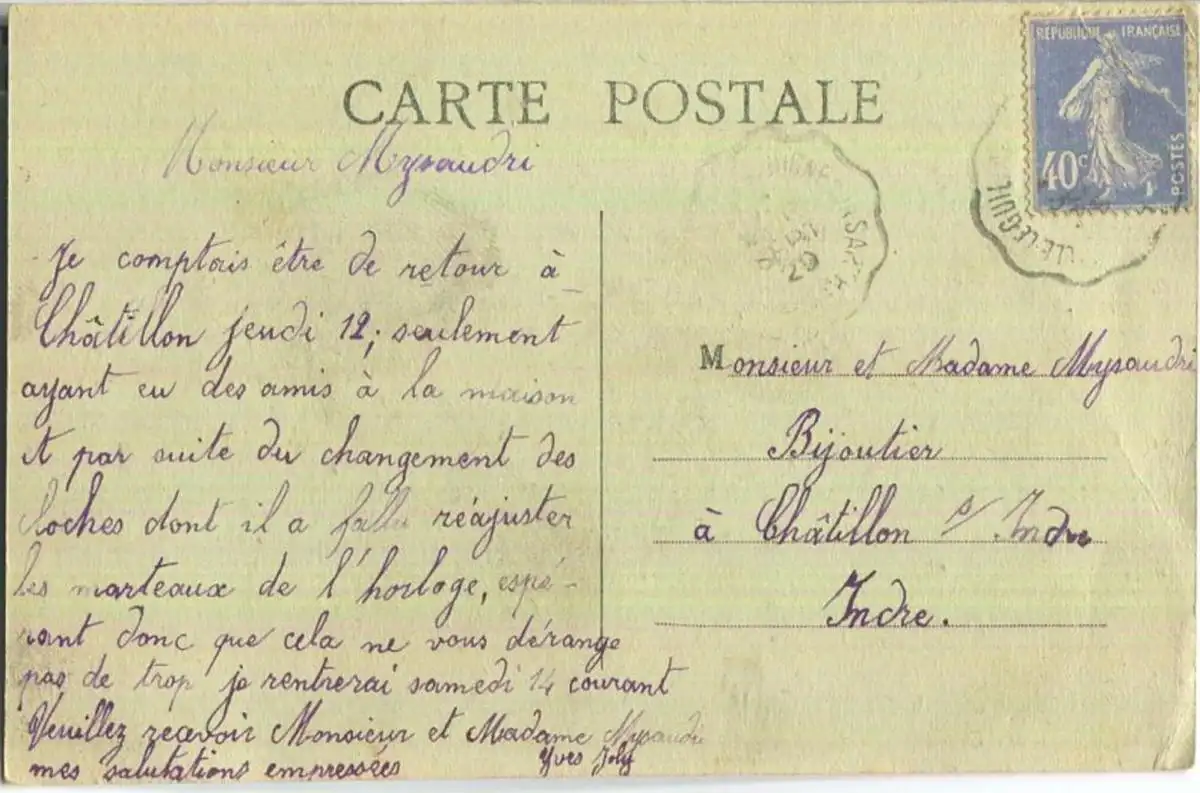 CARTE POSTALE
RÉPUBLIQUE FRANÇAISE
40c
POSTES
Monsieur Mysaudri
Je comptais être de retour à
Châtillon jeudi 12; seulement
ayant eu des amis à la maison
et par suite du changement des
cloches dont il a fallu réajuster
les marteaux de l'horloge, espé-
rant donc que cela ne vous dérange
pas de trop je rentrerai samedi 14 courant
Veuillez recevoir Monsieur et Madame Mysaudri
mes salutations empressées
Yves Joly
Monsieur et Madame Mysaudri
Bijoutier
à Châtillon s/ Indre
Indre.